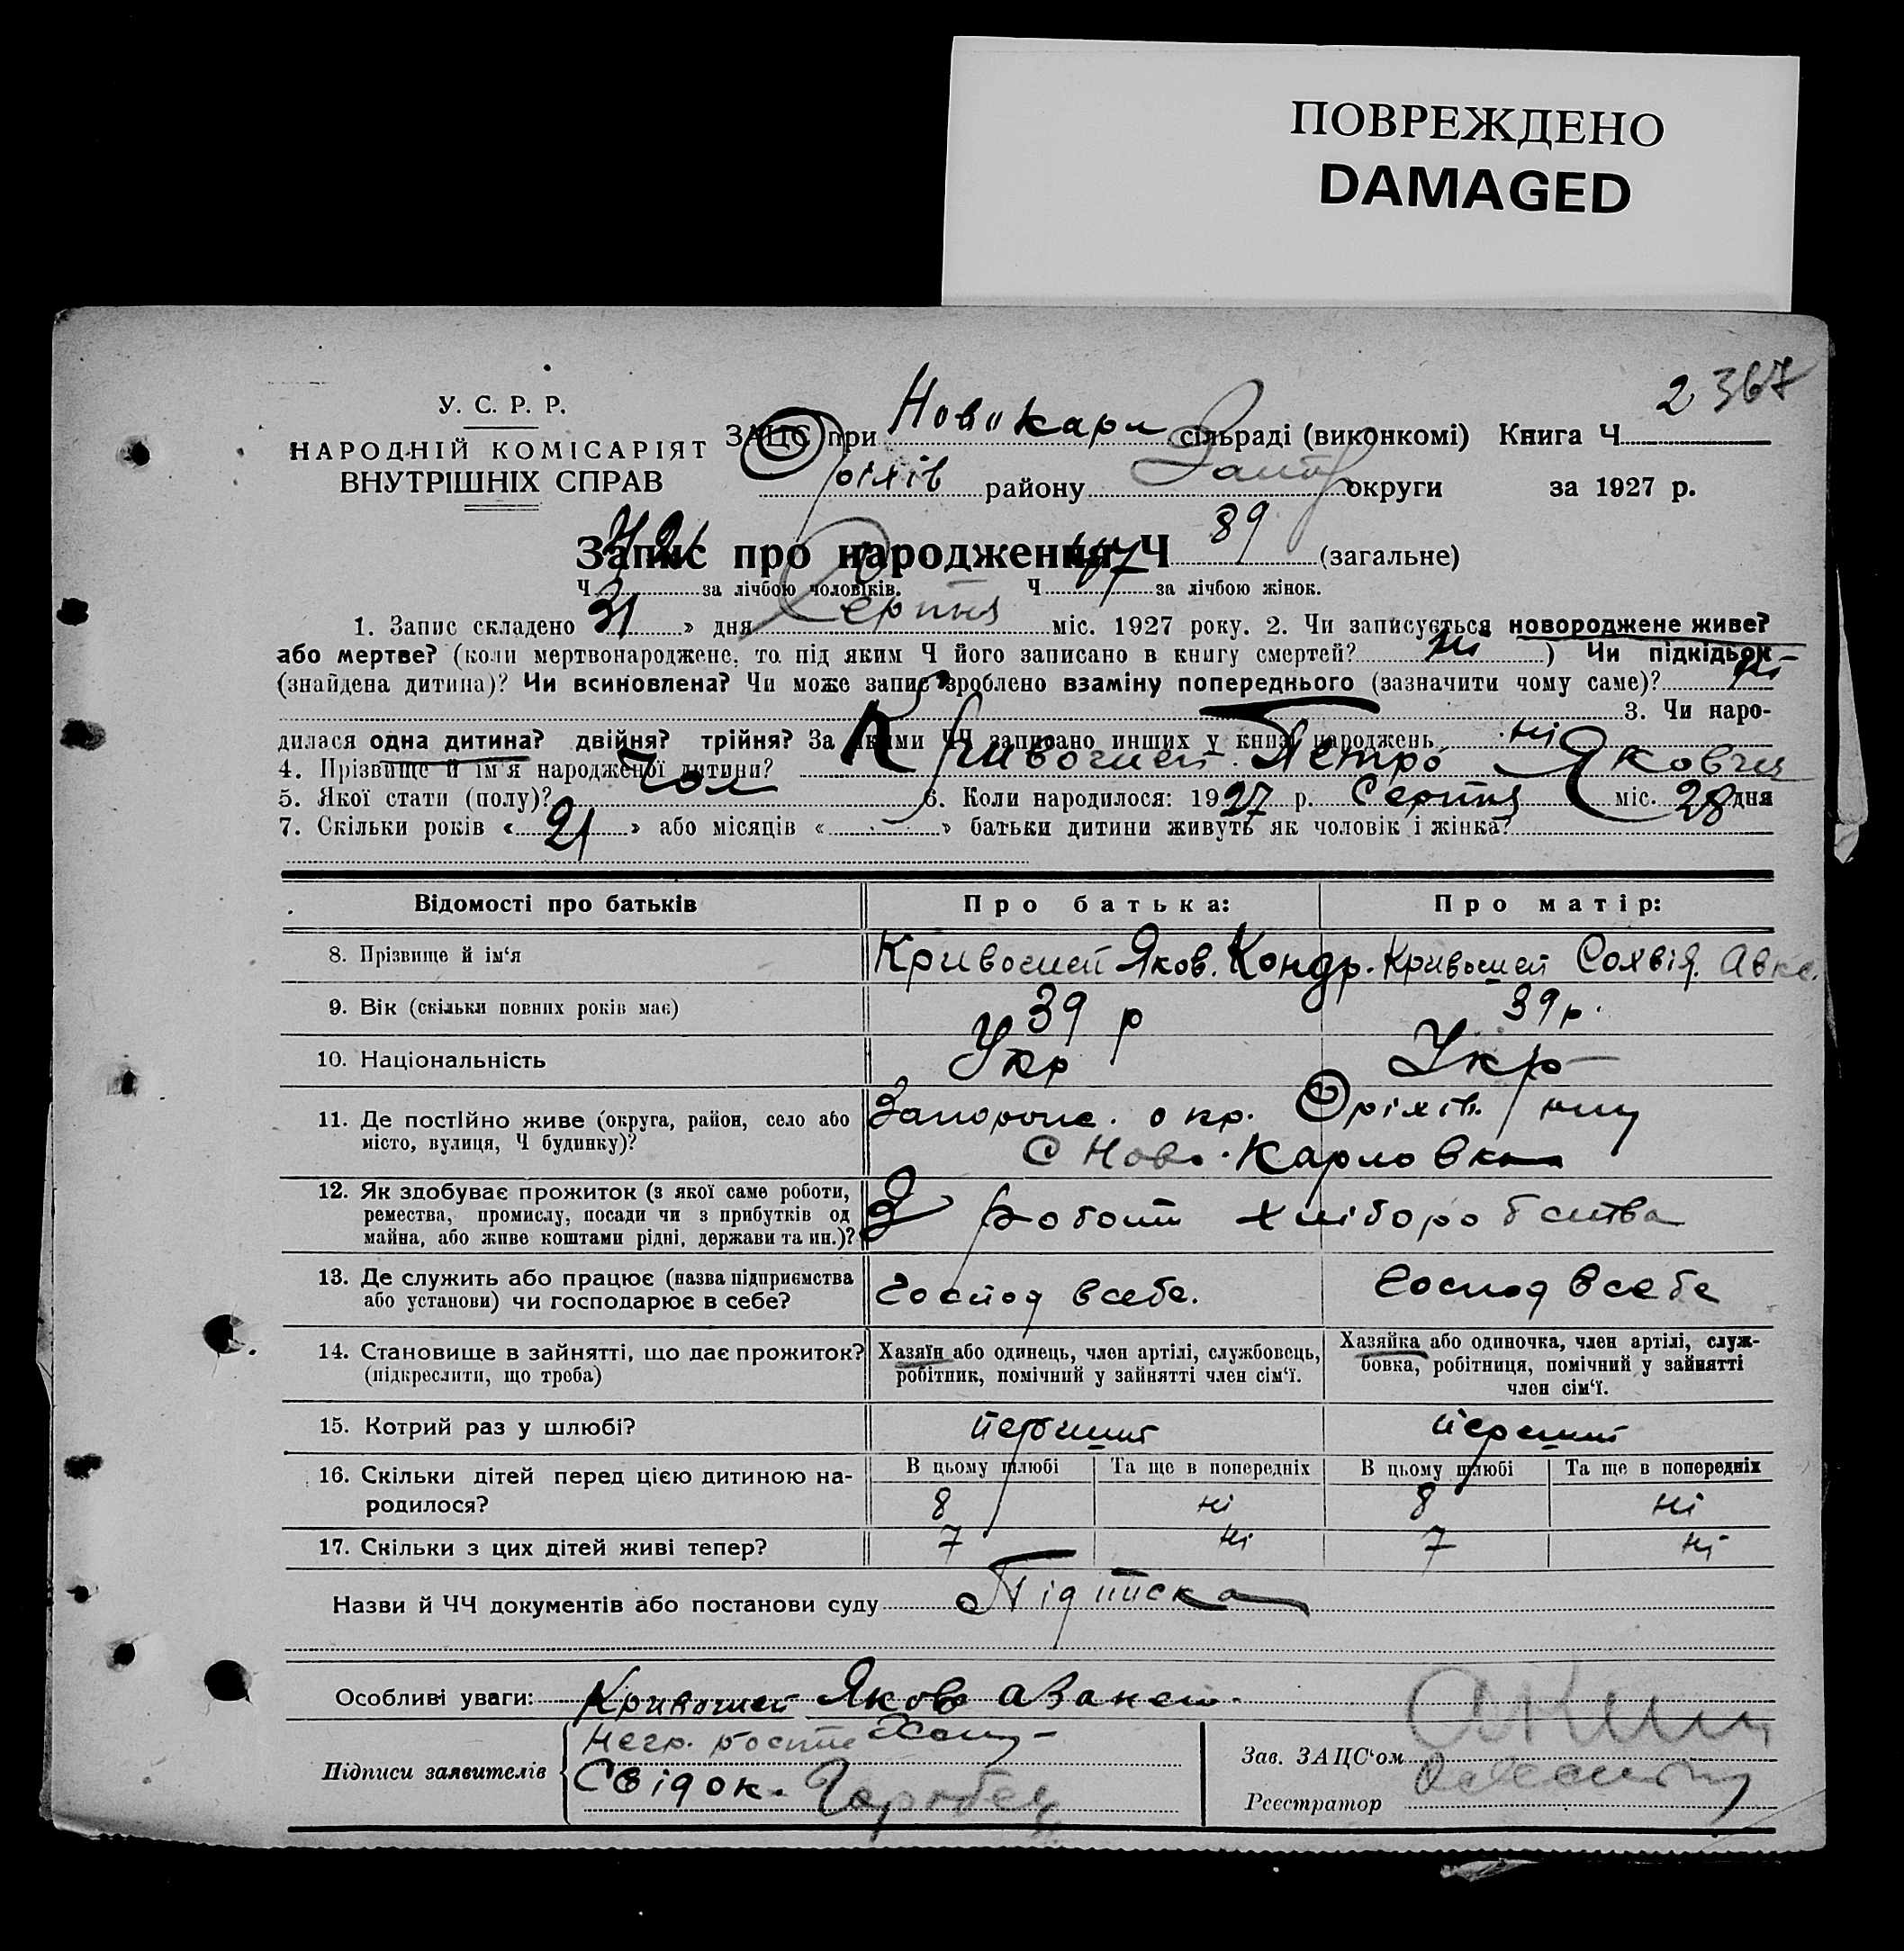 ПОВРЕЖДЕНО
DAMAGED
2 367
У. С. Р. Р.
НАРОДНІЙ КОМІСАРІЯТ
ВНУТРІШНІХ СПРАВ
ЗАЦС при Новокарл сільраді (виконкомі) Книга Ч
Оріхів району Запор округи за 1927 р.
Запис про народження Ч 89 (загальне)
Ч за лічбою чоловіків. Ч 47 за лічбою жінок.
1. Запис складено 31 » дня Серпня міс. 1927 року. 2. Чи записується новороджене живе?
або мертве? (коли мертвонароджене, то під яким Ч його записано в книгу смертей? ні ) Чи підкідьок
(знайдена дитина)? Чи всиновлена? Чи може запис зроблено взаміну попереднього (зазначити чому саме)? ні
3. Чи наро-
дилася одна дитина? двійня? трійня? За якими ЧЧ записано инших у книзі народжень ні
4. Прізвище й ім'я народженої дитини? Кривошей Петро Яковч
5. Якої стати (полу)? чол 6. Коли народилося: 1927 р. Серпня міс. 28 дня
7. Скільки років « 21 » або місяців « » батьки дитини живуть як чоловік і жінка?
Відомості про батьків Про батька: Про матір:
8. Прізвище й ім'я Кривошей Яков. Кондр. Кривошей Сохвія. Авкс.
9. Вік (скільки повних років має) 39 р 39 р.
10. Національність Укр Укр
11. Де постійно живе (округа, район, село або Запорож. окр. Оріхів.
місто, вулиця, Ч будинку)? С Ново-Карловка
12. Як здобуває прожиток (з якої саме роботи,
ремества, промислу, посади чи з прибутків од З роботи хліборобства
майна, або живе коштами рідні, держави та ин.)?
13. Де служить або працює (назва підприємства Господ в себе. Господ в себе
або установи) чи господарює в себе?
14. Становище в зайнятті, що дає прожиток? Хазяїн або одинець, член артілі, службовець, Хазяйка або одиночка, член артілі, служ-
(підкреслити, що треба) робітник, помічний у зайнятті член сім'ї. бовка, робітниця, помічний у зайнятті
член сім'ї.
15. Котрий раз у шлюбі? перший перший
16. Скільки дітей перед цією дитиною на- В цьому шлюбі Та ще в попередніх В цьому шлюбі Та ще в попередніх
родилося? 8 ні 8 ні
17. Скільки з цих дітей живі тепер? 7 ні 7 ні
Назви й ЧЧ документів або постанови суду Підписка
Особливі уваги: Кривошей Яков
Підписи заявителів
Свідок.
Зав. ЗАЦС'ом
Реєстратор